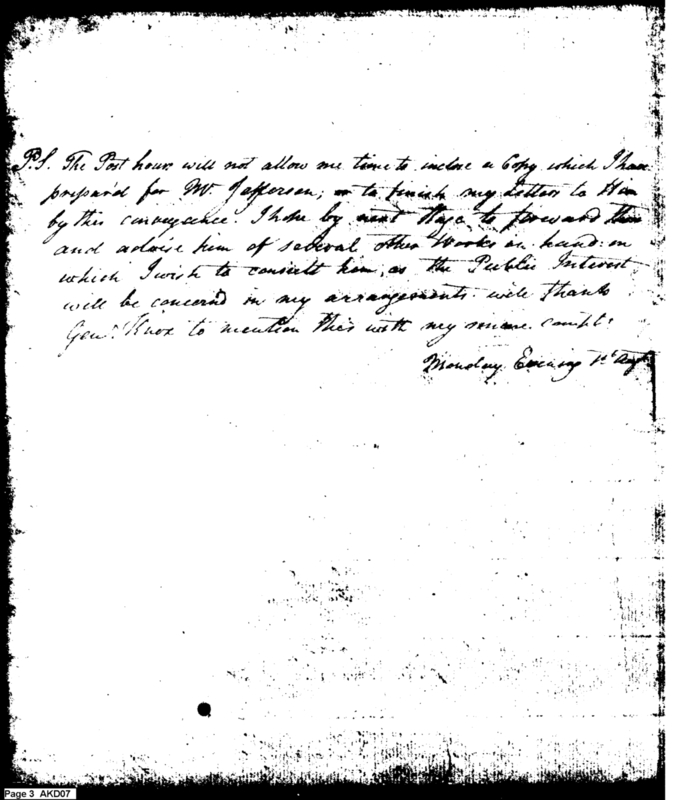 P.S. The Post hour will not allow me time to inclose a Copy which I have
prepar'd for Mr. Jefferson; or to finish my Letters to Him
by this conveyance. I hope by next Stage to forward them
and advise him of several other Works on hand: on
which I wish to consult him, as the Public Interest
will be concern'd in my arrangements. will thank
Genl. Knox to mention this with my sincere complts.
Monday Evening 1st Augt.
Page 3 AKD07